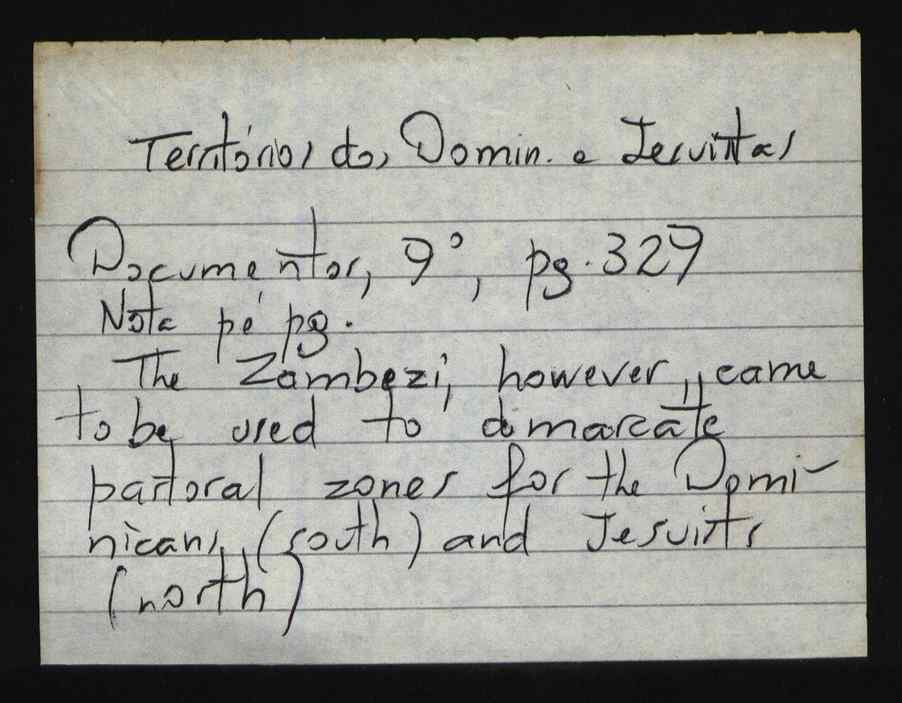 Territórios dos Domin. e Jesuitas
Documentos, 9º, pg. 329
Nota pé pg.
The Zambezi, however, came
to be used to dimarcate
pastoral zones for the Domi-
nicans, (south) and Jesuits
(north)